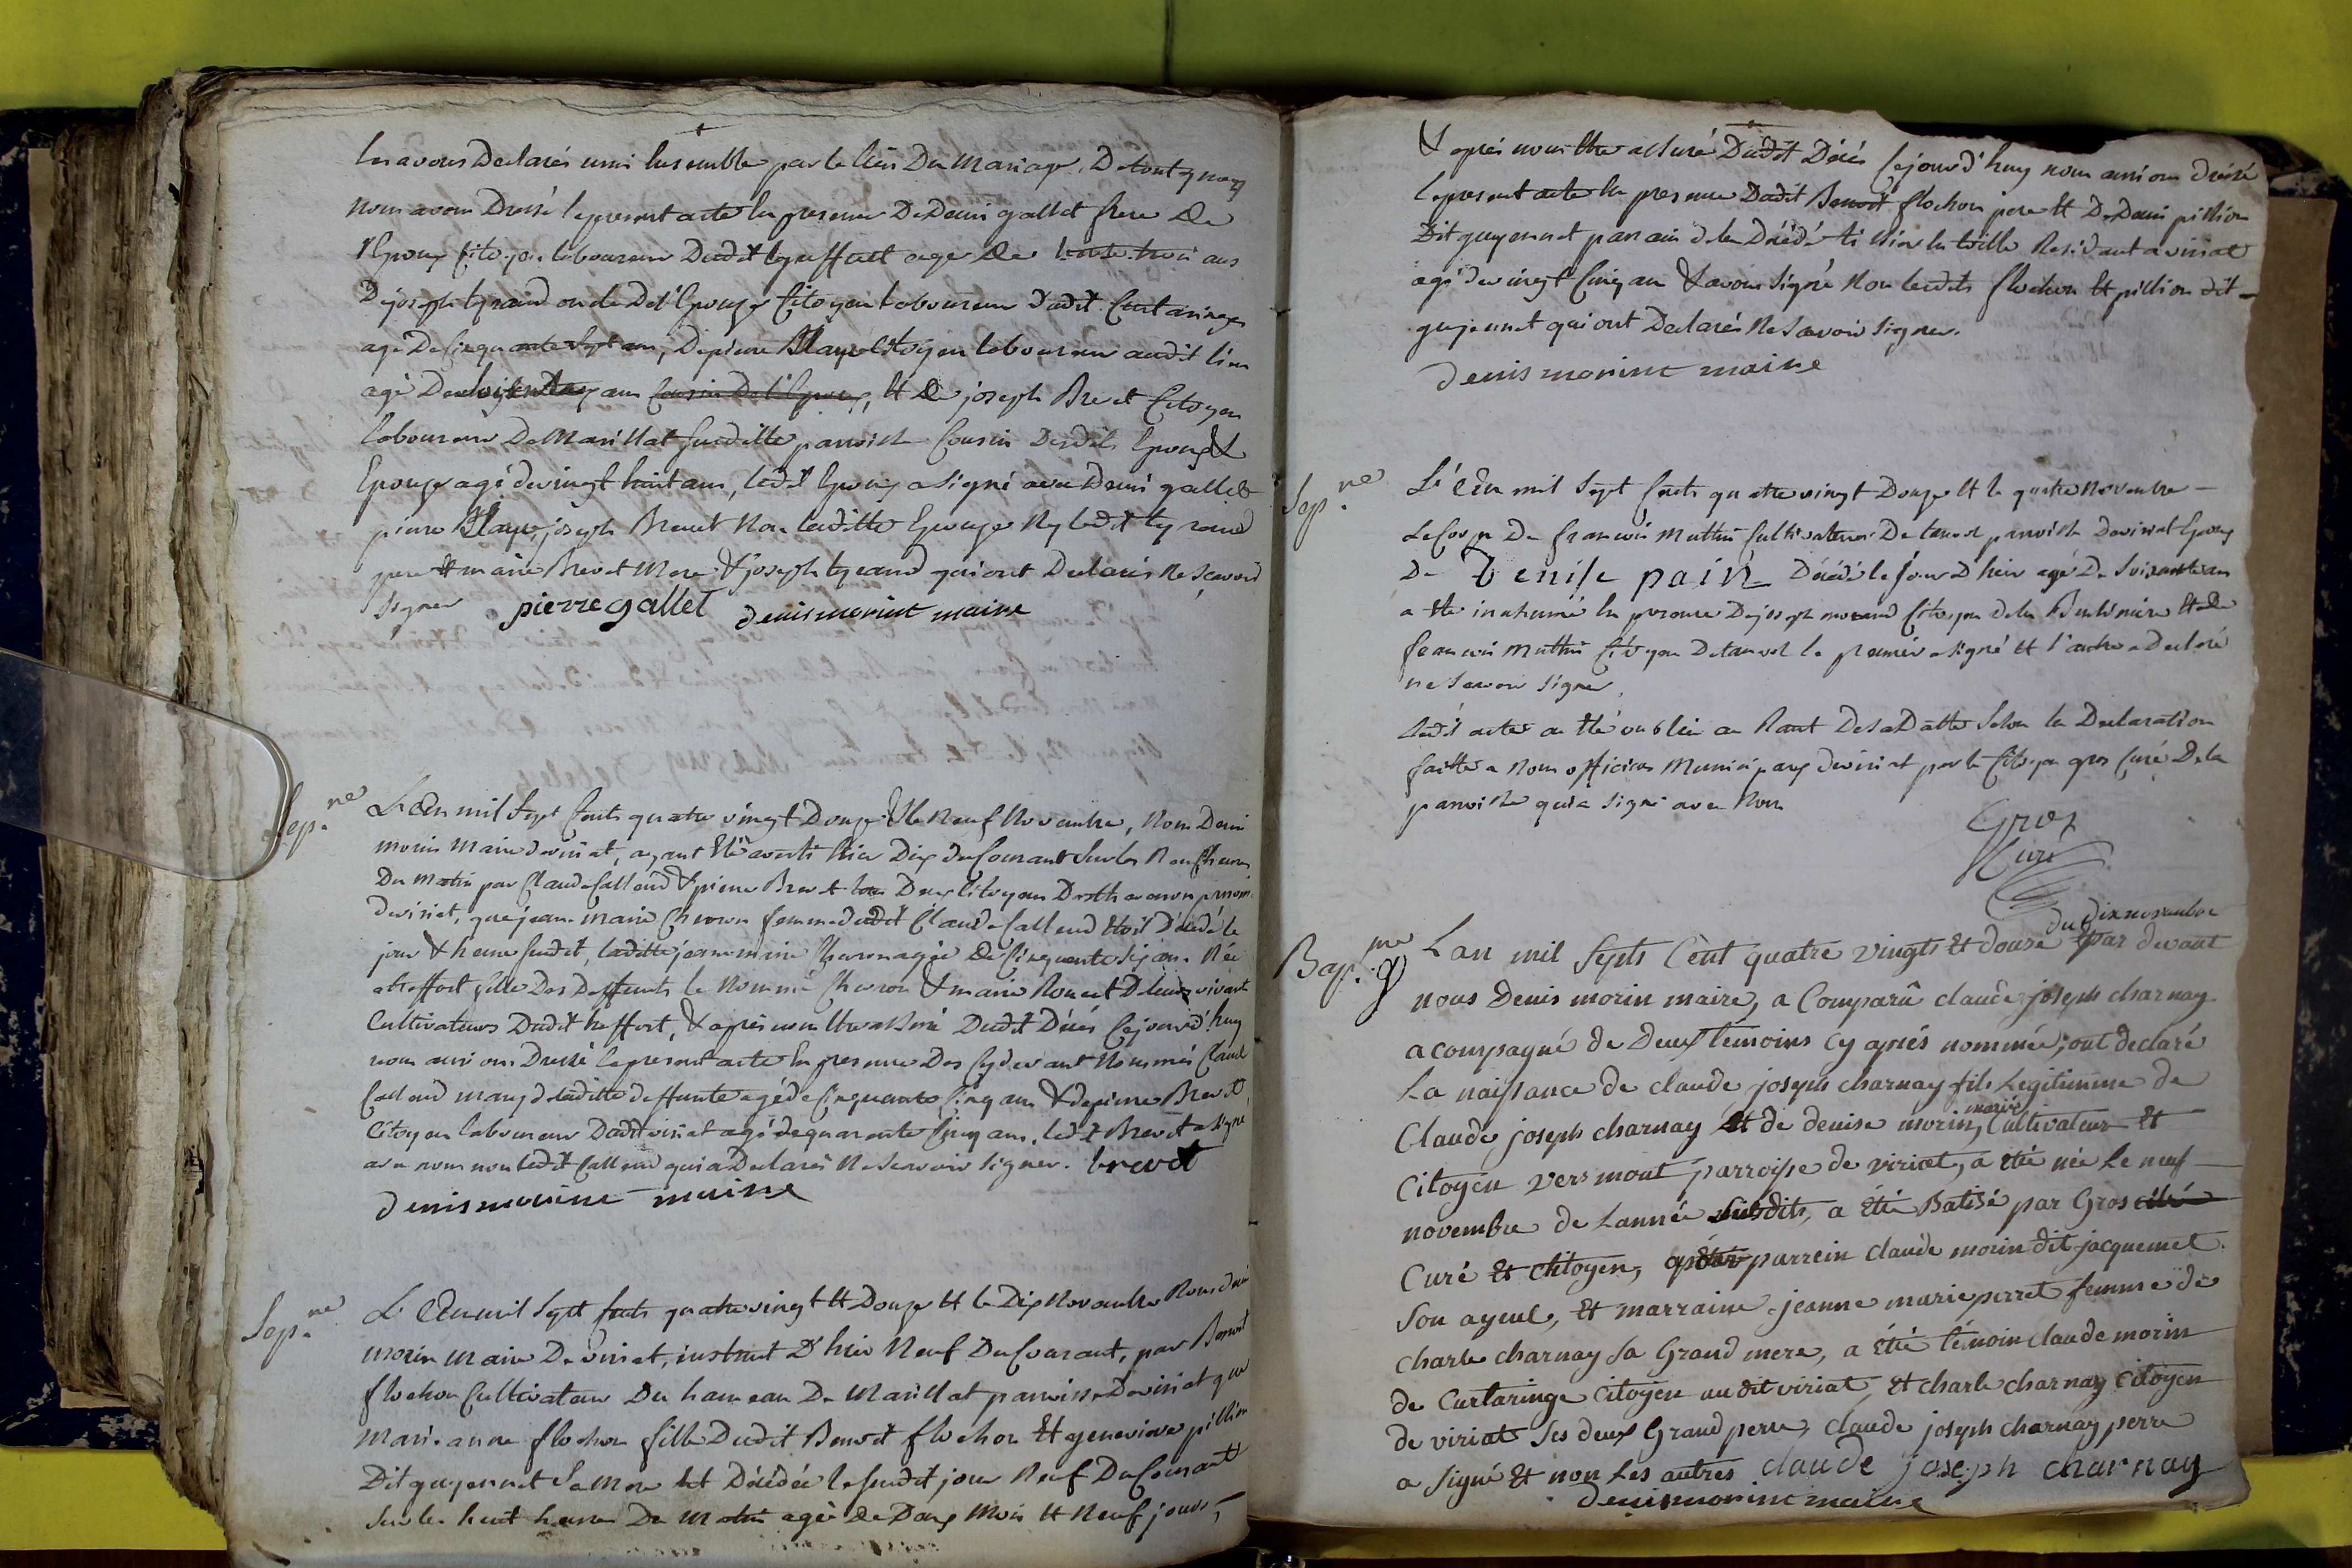 les avons Declarés unis Ensemble par le lien Du Mariage. De tout quoy
nous avons Dressé le present acte En presence De Denis gallet frere De
l'Epoux Citoyen laboureur Dudit age De trente trois ans
De joseph oncle De l'Epouse Citoyen laboureur Dudit Curtaringe
agé De Cinquante Sept ans, De pierre Citoyen laboureur audit lieu
agé De ans Cousin De l'Epoux, Et De joseph Brevet Citoyen
laboureur De Marillat Susditte parroisse Cousin Desdits Epoux &
Epouse agé de vingt huit ans, ledit Epoux a signé avec Denis gallet
pierre joseph Brevet Non laditte Epouse Ny ledit
pere Et marie Brevet Mere & joseph qui ont Declarés Ne Scavoir
Signer pierre gallet denis morin maire
Sep.re
L'An mil Sept Cents quatre vingt Douze & le Neuf Novembre, Nous Denis
morin Maire de viriat, ayant Eté averti hier Dix du Courant Sur les Neuf heures
Du Matin par Claude Calland & pierre Brevet tous Deux Citoyens parroisse
de viriat, que jeanne marie Chevron femme dudit Claude Calland Etoit Décédé le
jour & heure Susdit, laditte jeanne marie Chevron agée De Cinquante Six ans Née
fille Des Deffunts le Nommé Chevron & marie De leur vivant
Cultivateurs Dudit & après nous Etre assuré Dudit Décés Cejourd'huy
nous avions Dressé le present acte En presence Des Cydevant Nommés Claude
Calland mary de laditte deffunte agé de Cinquante Cinq ans & de pierre Brevet
Citoyen laboureur Dudit viriat agé de quarante Cinq ans, ledit Brevet a signé
avec nous non ledit Calland qui a Declarés Ne Scavoir Signer. brevet
denis morin maire
Sep.re
L'An mil Sept Cents quatre vingt Et Douze Et le Dix Novembre Nous denis
morin Maire De viriat, instruit D'hier Neuf Du Courant, par Benoit
flochon Cultivateur Du hameau De Marillat parroisse De viriat que
Marianne flochon fille Dudit Benoit flochon Et genevieve pillion
Dit guyennet Sa Mere Est Décédée le Susdit jour Neuf Du Courant
Sur les huit heures Du Matin agée De Deux Mois Et Neuf jours,
& après nous Etre assuré Dudit Décés Cejourd'huy nous avions dressé
le present acte En presence Dudit Benoit flochon pere Et De Denis pillion
Dit guyennet parrain de la Décédé Résidant a viriat
agé de vingt Cinq ans & avons Signé Non lesdits flochon Et pillion dit
guyennet qui ont Declarés Ne Savoir Signer.
denis morin maire
Sep.re
L'An mil Sept Cents quatre vingt Douze Et le quatre Novembre
Le Corps De francois Mathié Cultivateur De parroisse De viriat Epoux
De Denise pain Décédé le jour D'hier agé De Soixante ans
a Eté inhumé En presence De joseph morand Citoyen de la Et De
francois Mathié Citoyen De le premier a signé Et l'autre a Declaré
ne Savoir Signer.
ledit acte a Eté oublié au Rant De Sa Datte Selon la Declaration
faitte a Nous officiers Municipaux de viriat par le Citoyen gros Curé De la
parroisse qui a Signé avec Nous
Gros
Curé
Bap.me
du dix novembre
Lan mil Septs Cent quatre vingts Et douze par devant
nous Denis morin maire, a Comparû claude joseph charnay
acompagné de Deux temoins Cy aprés nommée, ont declaré
La naissance de claude joseph charnay fils Legitimme de
Claude joseph charnay Et de denise morin, mariée Cultivateur Et
Citoyen vers mont parroisse de viriat, a été née Le neuf
novembre de Lannée susdits, a Eté Batisé par Gros
Curé Et Citoyen, parrein claude morin dit jacquemet
Son ayeul, Et marraine jeanne marie perret femme de
charle charnay Sa Grand mere, a Eté témoin claude morin
de Curtaringe Citoyen audit viriat, Et charle charnay Citoyen
de viriat Ses deux Grand perre, claude joseph charnay perre
a signé Et non Les autres claude joseph charnay
denis morin maire